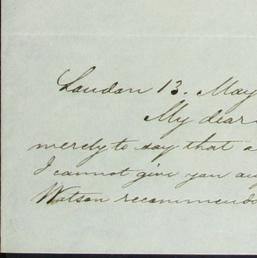 London 13. May
My dear
merely to say that a
I cannot give you any
Watson recommends